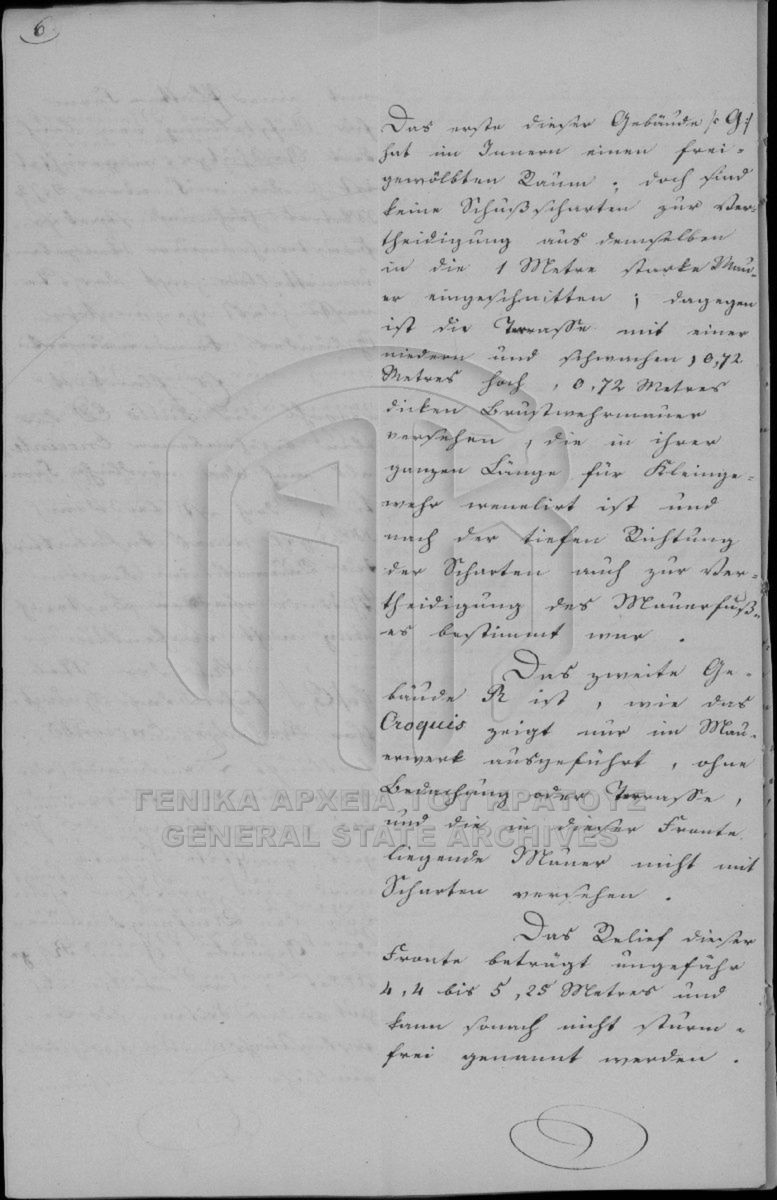 6
Das erste dieser Gebäude /: G :/
hat im Innern einen frei-
gewölbten Raum; doch sind
keine Schußscharten zur Ver-
theidigung aus demselben
in die 1 Metre starke Mau-
er eingeschnitten; dagegen
ist die Terrasse mit einer
niedern und schwachen, 0,72
Metres hoch, 0,72 Metres
dicken Brustwehrmauer
versehen, die in ihrer
ganzen Länge für Kleinge-
wehr crenelirt ist und
nach der tiefen Richtung
der Scharten auch zur Ver-
theidigung des Mauerfuß-
es bestimmt war.
Das zweite Ge-
bäude R ist, wie das
Croquis zeigt nur im Mau-
erwerk ausgeführt, ohne
Bedachung oder Terrasse,
und die in dieser Fronte
liegende Mauer nicht mit
Scharten versehen.
Das Relief dieser
Fronte beträgt ungefähr
4,4 bis 5,25 Metres und
kann sonach nicht sturm-
frei genannt werden.
ΓΕΝΙΚΑ ΑΡΧΕΙΑ ΤΟΥ ΚΡΑΤΟΥΣ
GENERAL STATE ARCHIVES